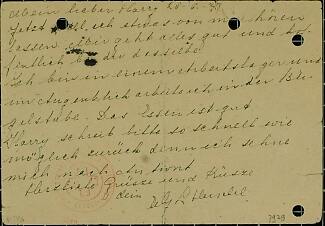 Mein lieber Harry 20.5.
Jetzt will ich etwas von mir hören
lassen. Mir geht alles gut und hof-
fentlich bei dir desselbe.
Ich bin in einem Arbeitslager und
im Augenblick arbeite ich in der Bü-
gelstube. Das Essen ist gut
Harry schreib bitte so schnell wie
möglich zurück denn ich sehne
mich nach Antwort
Herzliche Grüsse und Küsse
dein
7929